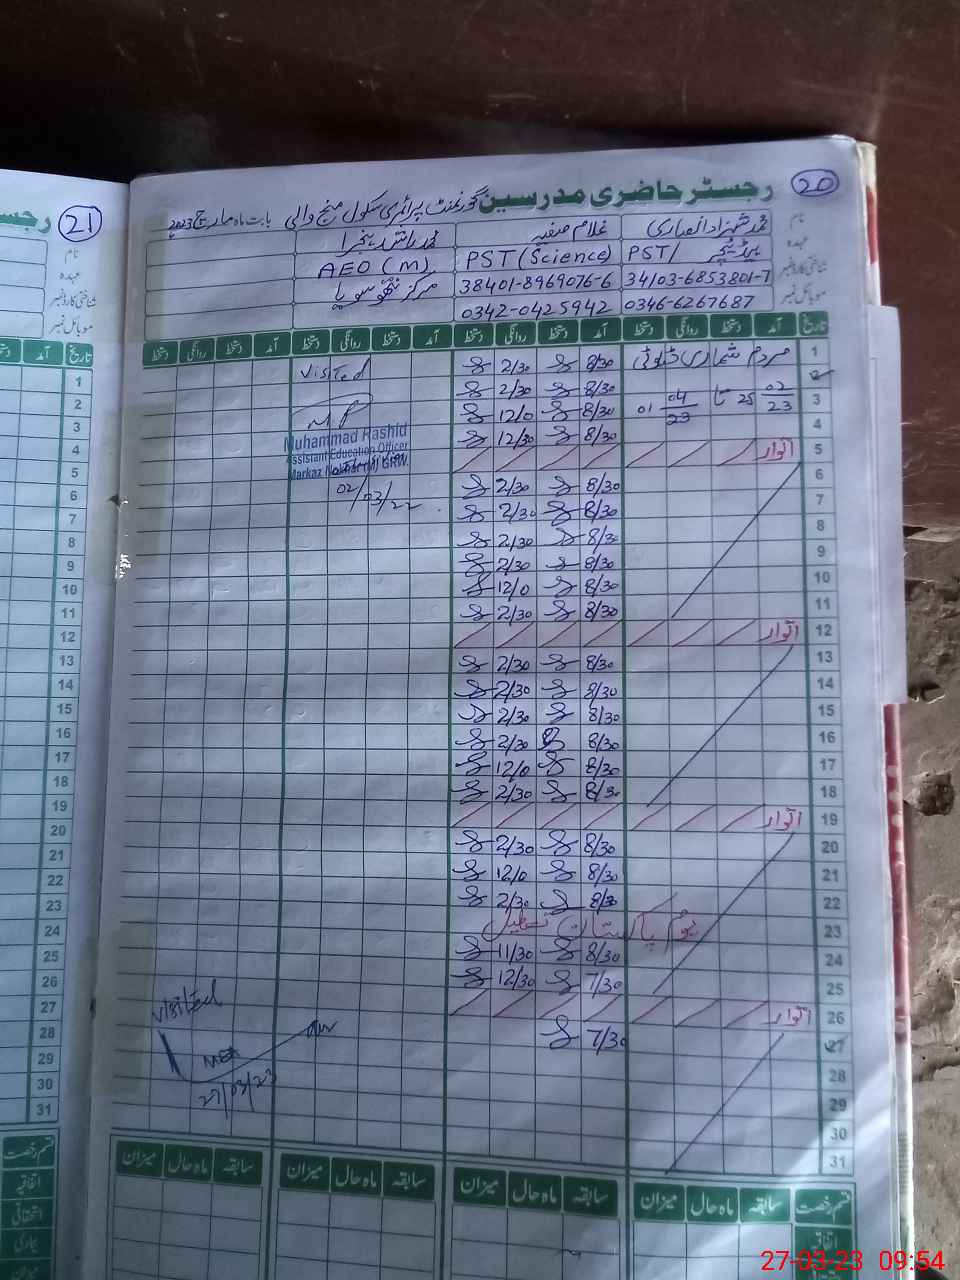 رجسٹر حاضری مدرسین گورنمنٹ پرائمری سکول منج والی بابت ماہ مارچ 2023
20
21
نام محمد شہزاد انصاری غلام صفیہ محمد راشد ہنجرا
عہدہ PST/ ہیڈ ٹیچر PST (Science) AEO (M)
شناختی کارڈ نمبر 34103-6853801-7 38401-8969076-6 مرکز
موبائل نمبر 0346-6267687 0342-0425942
تاریخ آمد دستخط روانگی دستخط آمد دستخط روانگی دستخط آمد دستخط روانگی دستخط آمد دستخط روانگی دستخط
1 مردم شماری ڈیوٹی 8/30 2/30 Visited
2 8/30 2/30
3 25 02/23 تا 01 04/23 8/30 12/0
4 8/30 12/30
Muhammad Rashid
Assistant Education Officer
Markaz (M) GRW.
02/03/22
5 اتوار
6 8/30 2/30
7 8/30 2/30
8 8/30 2/30
9 8/30 2/30
10 8/30 12/0
11 8/30 2/30
12 اتوار
13 8/30 2/30
14 8/30 2/30
15 8/30 2/30
16 8/30 2/30
17 8/30 12/0
18 8/30 2/30
19 اتوار
20 8/30 2/30
21 8/30 12/0
22 8/30 2/30
23 یوم پاکستان تعطیل
24 8/30 11/30
25 7/30 12/30
26 اتوار
27 7/30
28
29
30
31
Visited
MEA
27/03/23
قسم رخصت سابقہ ماہ حال میزان سابقہ ماہ حال میزان سابقہ ماہ حال میزان سابقہ ماہ حال میزان
اتفاقیہ
نام
عہدہ
شناختی کارڈ نمبر
موبائل نمبر
تاریخ
1
2
3
4
5
6
7
8
9
10
11
12
13
14
15
16
17
18
19
20
21
22
23
24
25
26
27
28
29
30
31
قسم رخصت
اتفاقیہ
استحقاقی
بیماری
میزان
27-03-23 09:54